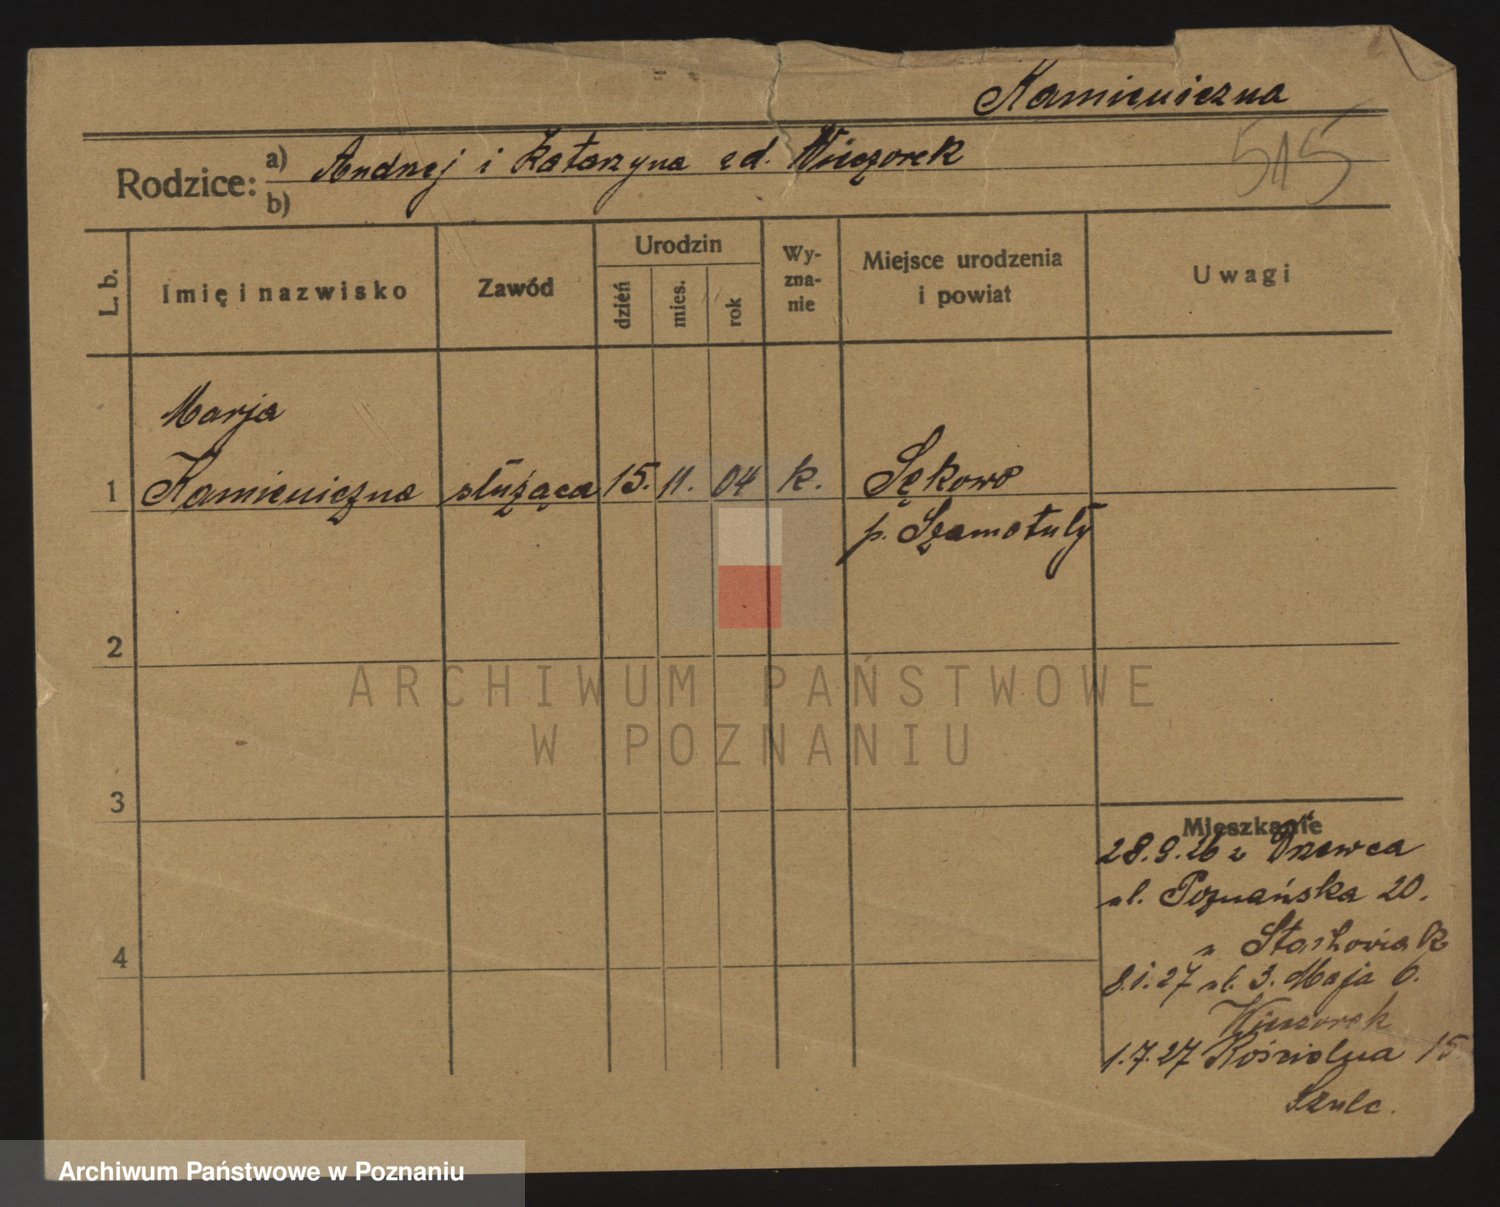 Kamieniczna
Rodzice: a) Andrzej i Katarzyna zd. Wieczorek
b)
515
L. b.
Imię i nazwisko
Zawód
Urodzin
dzień
mies.
rok
Wy-
zna-
nie
Miejsce urodzenia
i powiat
Uwagi
Marja
1 Kamieniczna służąca 15. 11. 04 k. Sękowo
p. Szamotuły
2
ARCHIWUM PAŃSTWOWE
W POZNANIU
3
Mieszkanie
28.9.26 z
ul. Poznańska 20.
u Stachowiak
4
8.1.27 ul. 3. Maja 6.
Wieczorek
1.7.27 Kościelna 15
Szulc.
Archiwum Państwowe w Poznaniu